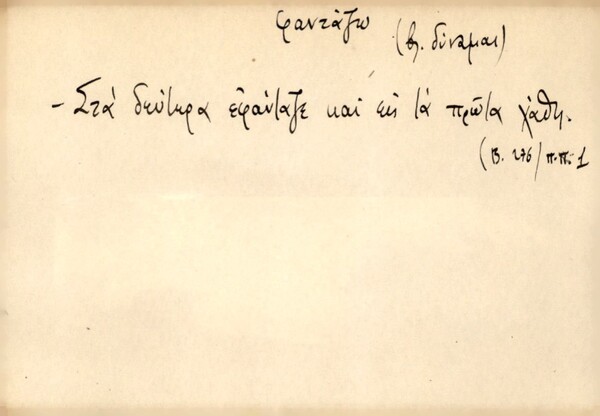 φαντάζω
(βλ. δύναμαι)
- Στά δεύτερα εφάνταζε καί εις τά πρῶτα χάθη.
(Β. 276/π.π. 1